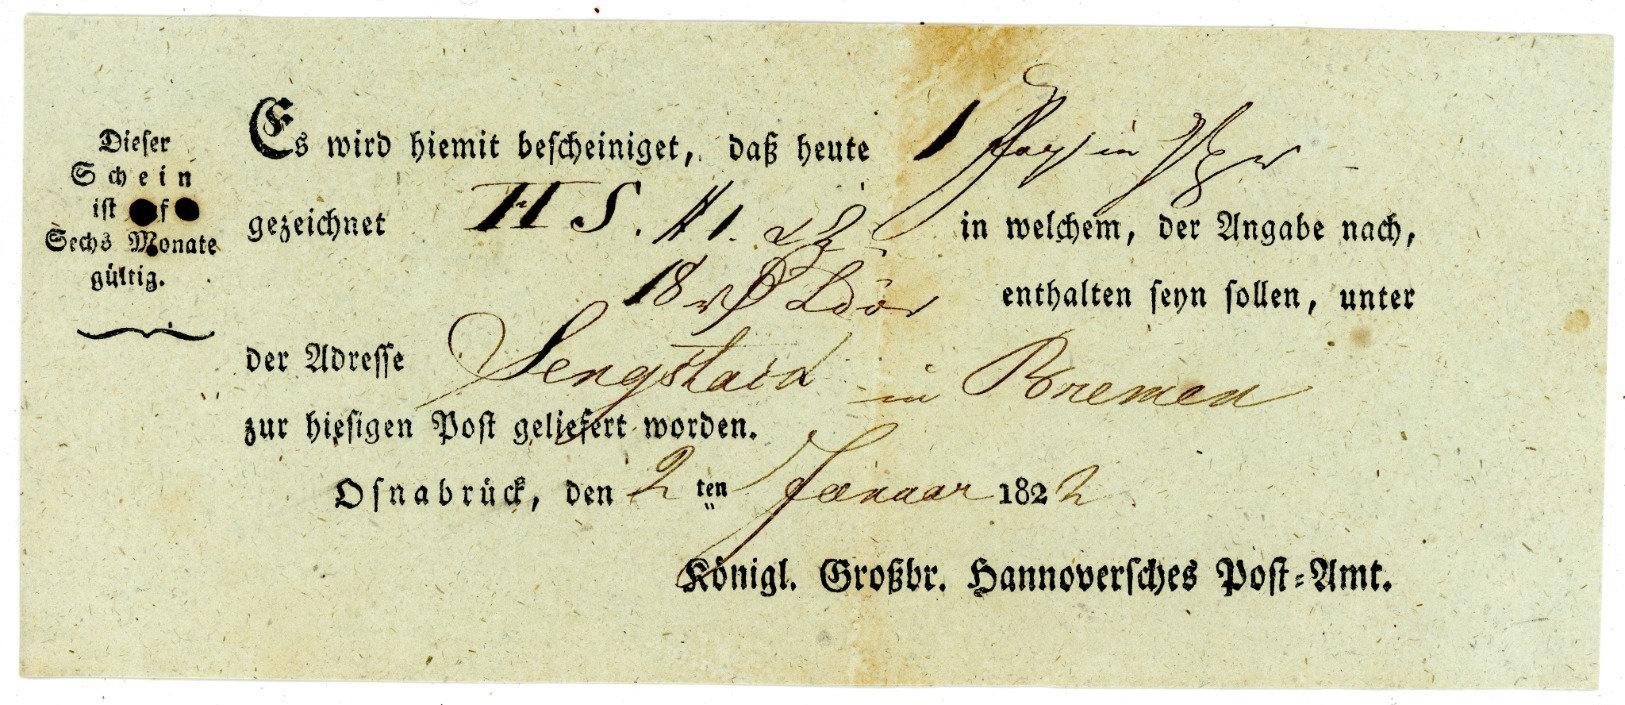 Dieser
Schein
ist auf
Sechs Monate
gültig.
Es wird hiemit bescheiniget, daß heute 1
gezeichnet HS. # 1. in welchem, der Angabe nach,
18 enthalten seyn sollen, unter
der Adresse Sengstack in Bremen
zur hiesigen Post geliefert worden.
Osnabrück, den 2 ten Januar 1822
Königl. Großbr. Hannoversches Post-Amt.